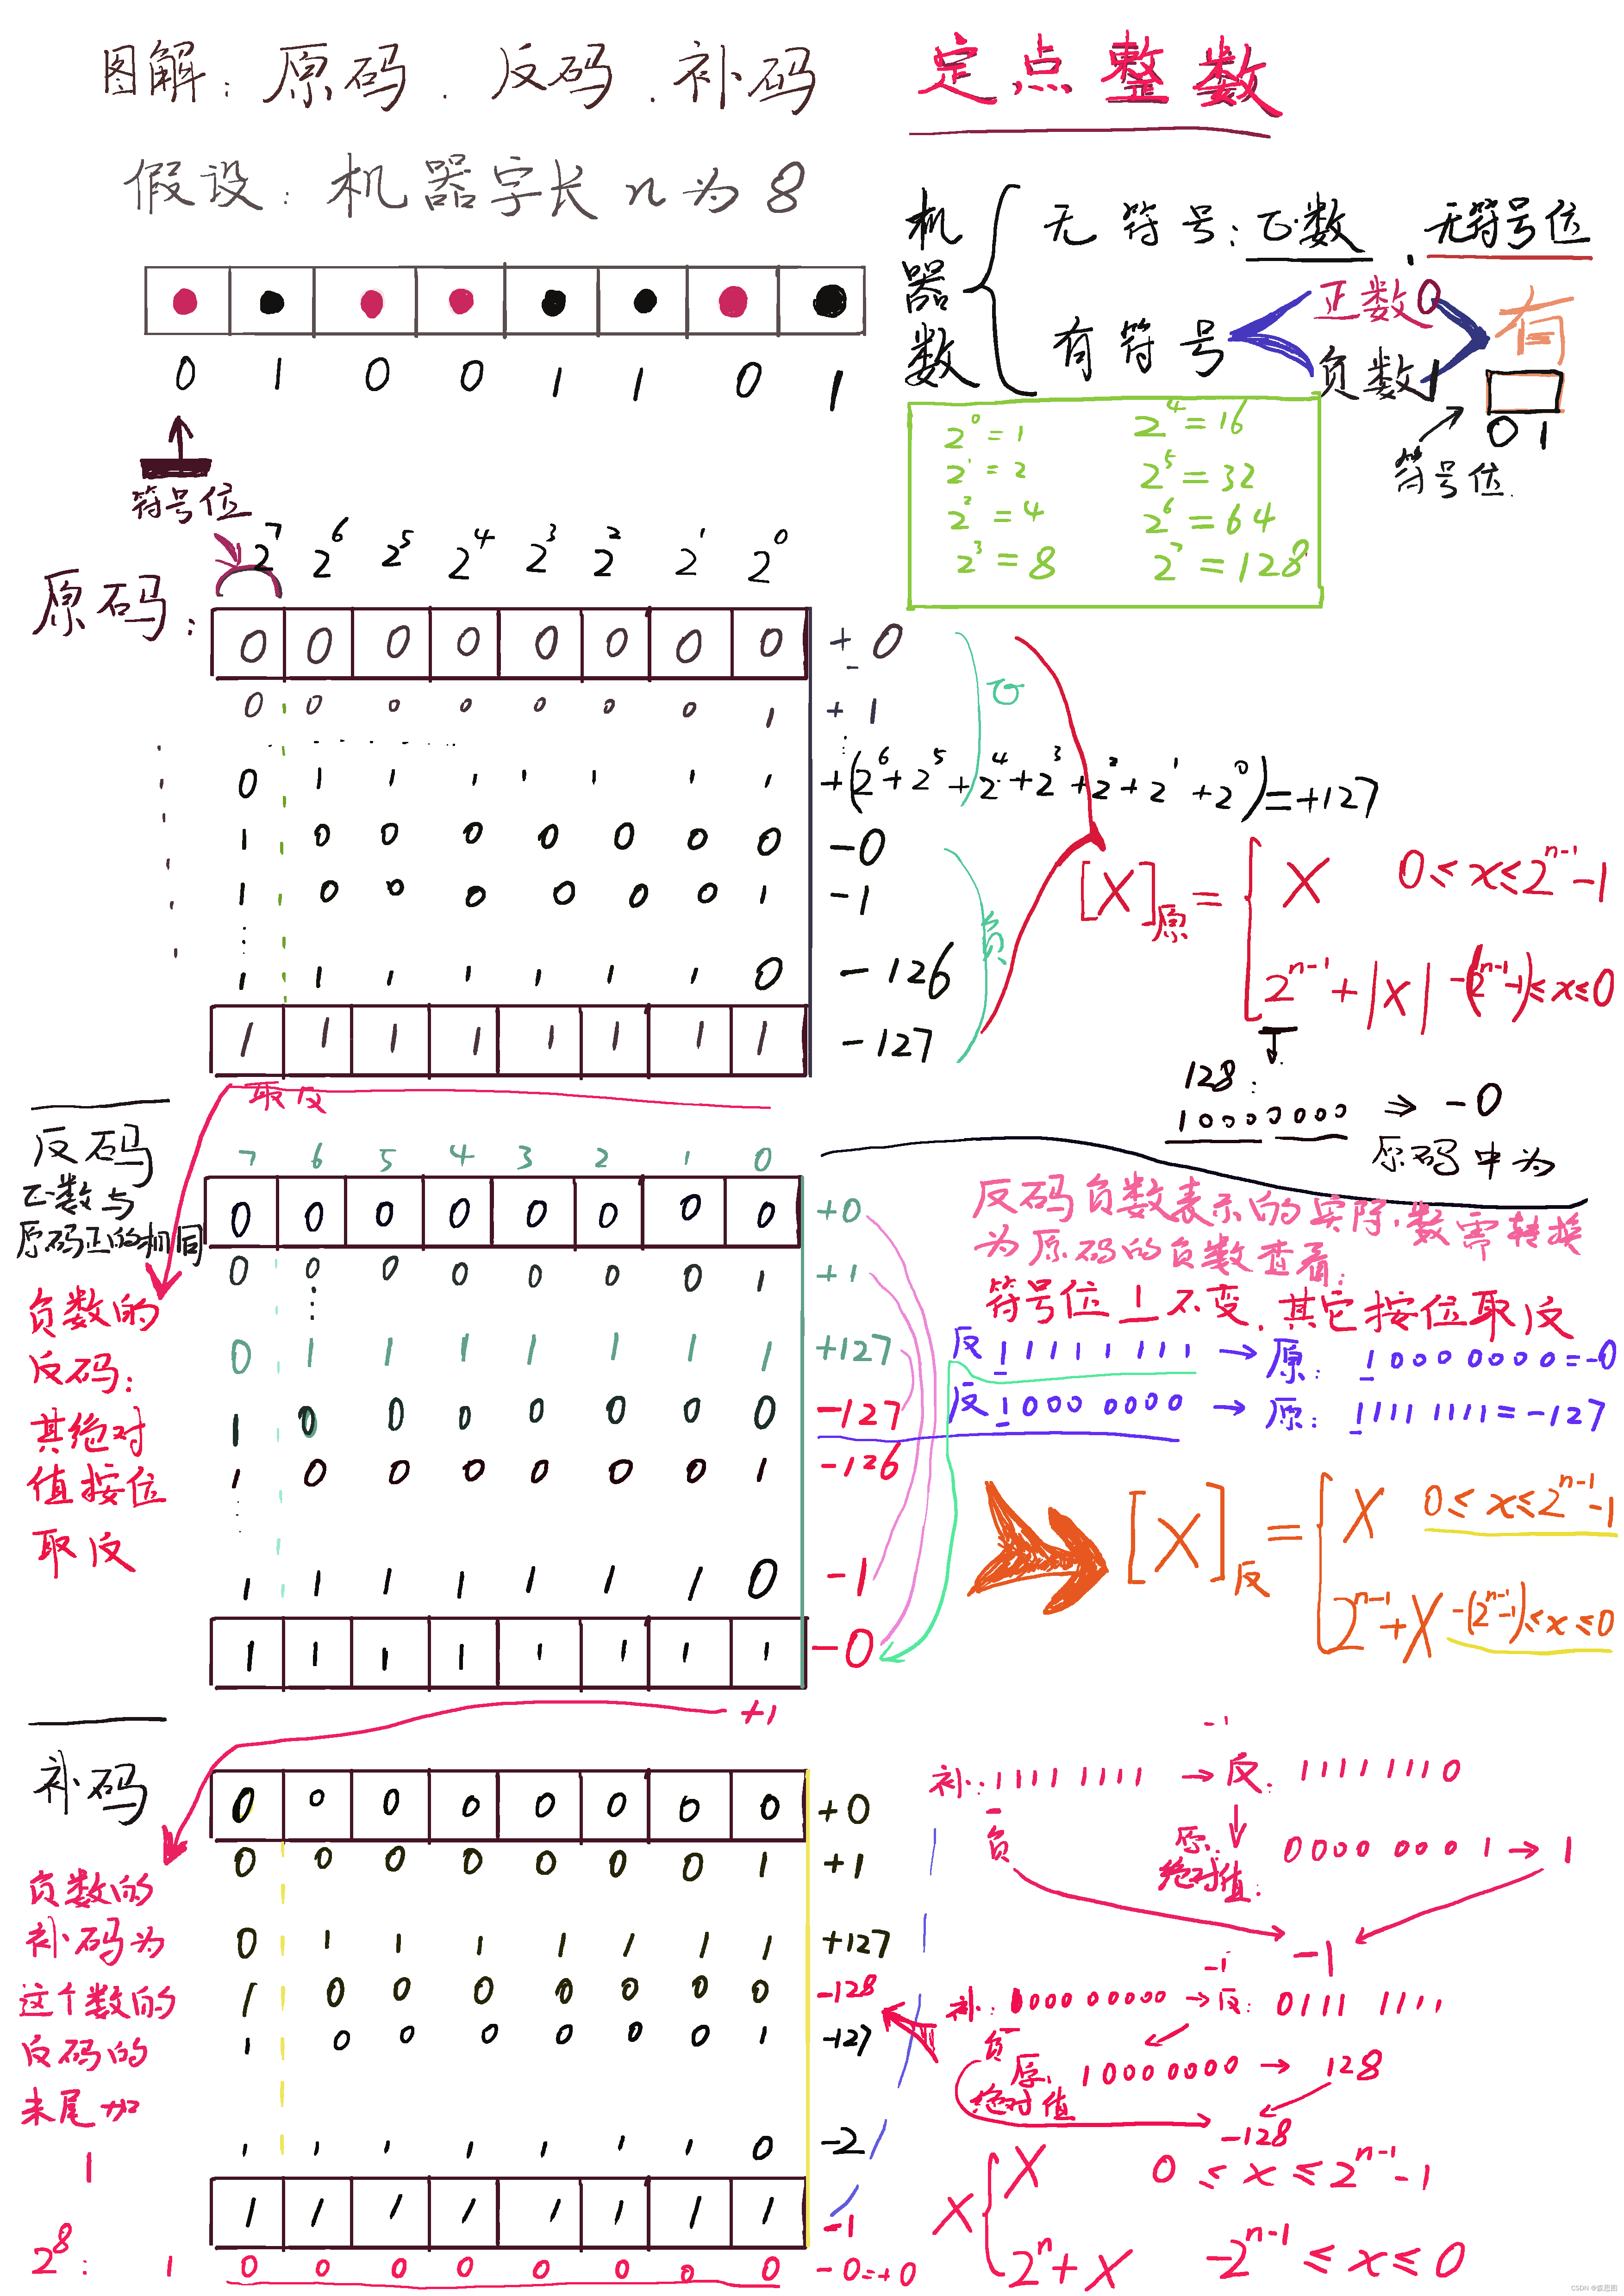 图解：原码．反码．补码
定点整数
假设：机器字长n为8
0 1 0 0 1 1 0 1
符号位
机器数
无符号：正数．无符号位
有符号
正数0
负数1
有
0 1
符号位
2^0=1
2^1=2
2^2=4
2^3=8
2^4=16
2^5=32
2^6=64
2^7=128
原码：
2^7 2^6 2^5 2^4 2^3 2^2 2^1 2^0
0 0 0 0 0 0 0 0 +0
0 0 0 0 0 0 0 1 +1
0 1 1 1 1 1 1 1 +(2^6+2^5+2^4+2^3+2^2+2^1+2^0)=+127
1 0 0 0 0 0 0 0 -0
1 0 0 0 0 0 0 1 -1
1 1 1 1 1 1 1 0 -126
1 1 1 1 1 1 1 1 -127
正
负
[X]原=
X 0≤x≤2^n-1-1
2^n-1+|X| -(2^n-1-1)≤x≤0
128：
10000000 ⇒ -0
原码中为
取反
反码
正数与
原码正的相同
负数的
反码：
其绝对
值按位
取反
7 6 5 4 3 2 1 0
0 0 0 0 0 0 0 0 +0
0 0 0 0 0 0 0 1 +1
0 1 1 1 1 1 1 1 +127
1 0 0 0 0 0 0 0 -127
1 0 0 0 0 0 0 1 -126
1 1 1 1 1 1 1 0 -1
1 1 1 1 1 1 1 1 -0
反码负数表示的实际数需转换
为原码的负数查看．
符号位1不变，其它按位取反
反 11111111 → 原：10000000=-0
反 10000000 → 原：11111111=-127
[X]反=
X 0≤x≤2^n-1-1
2^n-1+X -(2^n-1-1)≤x≤0
+1
补码
负数的
补码为
这个数的
反码的
末尾加
1
0 0 0 0 0 0 0 0 +0
0 0 0 0 0 0 0 1 +1
0 1 1 1 1 1 1 1 +127
1 0 0 0 0 0 0 0 -128
1 0 0 0 0 0 0 1 -127
1 1 1 1 1 1 1 0 -2
1 1 1 1 1 1 1 1 -1
2^8： 1 0 0 0 0 0 0 0 0 -0=+0
-1
补：11111111 → 反：11111110
负
原．
绝对值．
00000001 → 1
-1
-1
补：000000000 → 反：01111111
负
原．
绝对值
10000000 → 128
-128
X
X 0≤x≤2^n-1-1
2^n+X -2^n-1≤x≤0